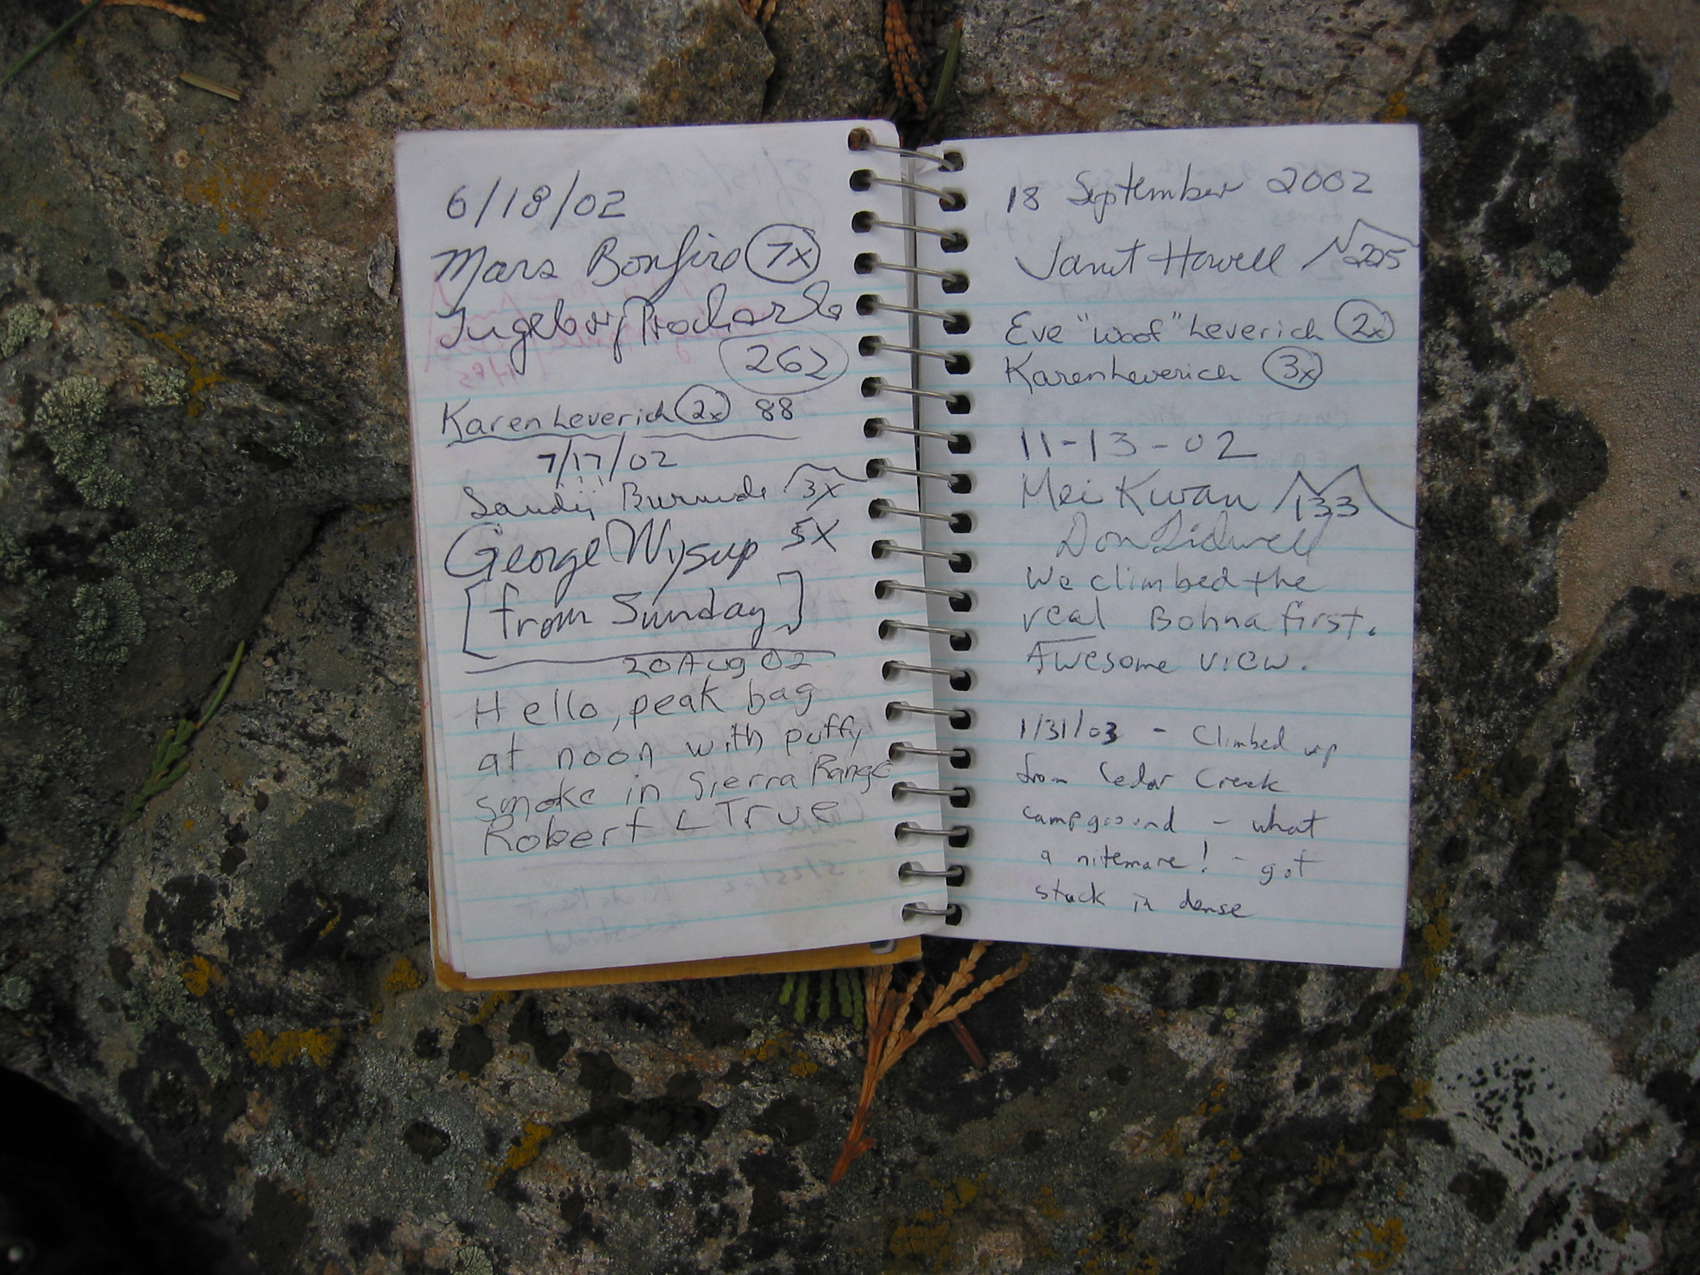 6/18/02
Mars Bonfire 7x
Ingeborg Prochazka
262
Karen Leverich 2x 88
7/17/02
Sandy Burnside 3x
George Wysup 5X
[from Sunday]
20 Aug 02
Hello, peak bag
at noon with puffy
smoke in Sierra Range
Robert L True
18 September 2002
Janet Howell 225
Eve "Woof" Leverich 2x
Karen Leverich 3x
11-13-02
Mei Kwan 133
Don Tidwell
We climbed the
real Bohna first.
Awesome view.
1/31/03 - Climbed up
from Cedar Creek
campground - what
a nitemare! - got
stuck in dense